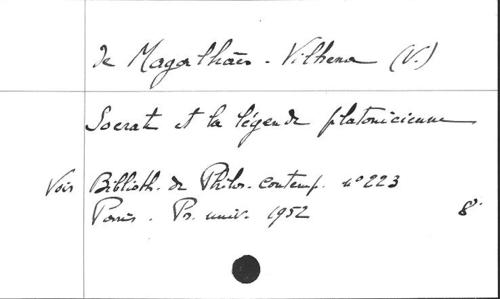 de Magalhães - Vilhena (V.)
Socrate et la légende platonicienne
Voir Biblioth. de Philos. contemp. nº 223
Paris. Pr. univ. 1952 8º